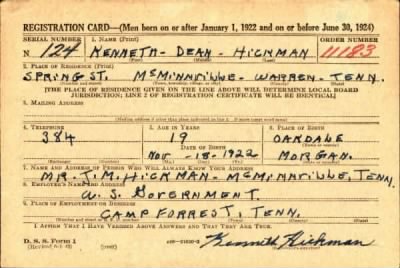 REGISTRATION CARD—(Men born on or after January 1, 1922 and on or before June 30, 1924)
SERIAL NUMBER 1. NAME (Print) ORDER NUMBER
N 124 KENNETH - DEAN - HICKMAN 11183
(First) (Middle) (Last)
2. PLACE OF RESIDENCE (Print)
SPRING ST. McMINNVILLE - WARREN - TENN.
[THE PLACE OF RESIDENCE GIVEN ON THE LINE ABOVE WILL DETERMINE LOCAL BOARD
JURISDICTION; LINE 2 OF REGISTRATION CERTIFICATE WILL BE IDENTICAL]
3. MAILING ADDRESS
4. TELEPHONE 5. AGE IN YEARS 6. PLACE OF BIRTH
384 19 OAKDALE
DATE OF BIRTH
NOV - 18 - 1922 MORGAN.
7. NAME AND ADDRESS OF PERSON WHO WILL ALWAYS KNOW YOUR ADDRESS
MR. T. M. HICKMAN - McMINNVILLE, TENN.
8. EMPLOYER'S NAME AND ADDRESS
U. S. GOVERNMENT.
CAMP FORREST, TENN.
I AFFIRM THAT I HAVE VERIFIED ABOVE ANSWERS AND THAT THEY ARE TRUE.
D. S. S. Form 1 Kenneth Hickman